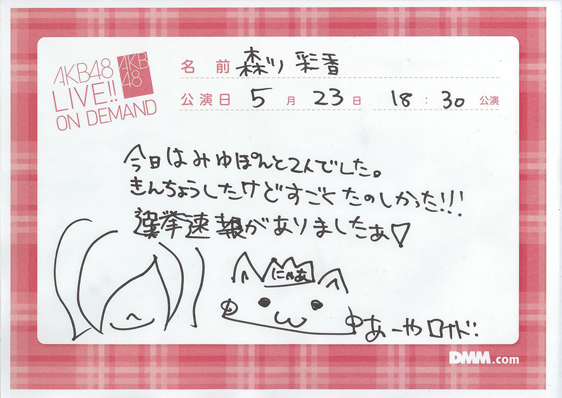 AKB48
LIVE!!
ON DEMAND
AKB
48
名前 森川 彩香
公演日 5月23日 18:30公演
今日はみゆぽんと2人でした。
きんちょうしたけどすごくたのしかった!!!
選挙速報がありましたぁ♡
にゃあ
あーや
DMM.com